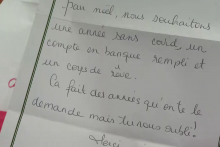 -pau miel, nous souhaitons
une année sans covid, un
compte en banque rempli et
un corps de rêve.
Ça fait des années qu'on te le
demande mais tu nous oublie!